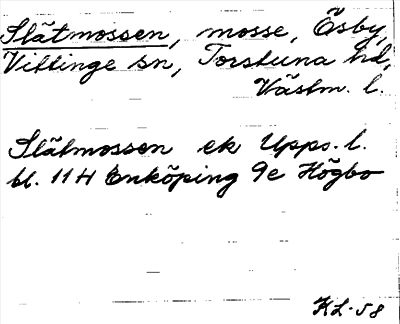 Slätmossen, mosse, Äsby,
Vittinge sn, Torstuna hd,
Västm. l.
Slätmossen ek Upps. l.
bl. 11H Enköping 9e Högbo
KL-58